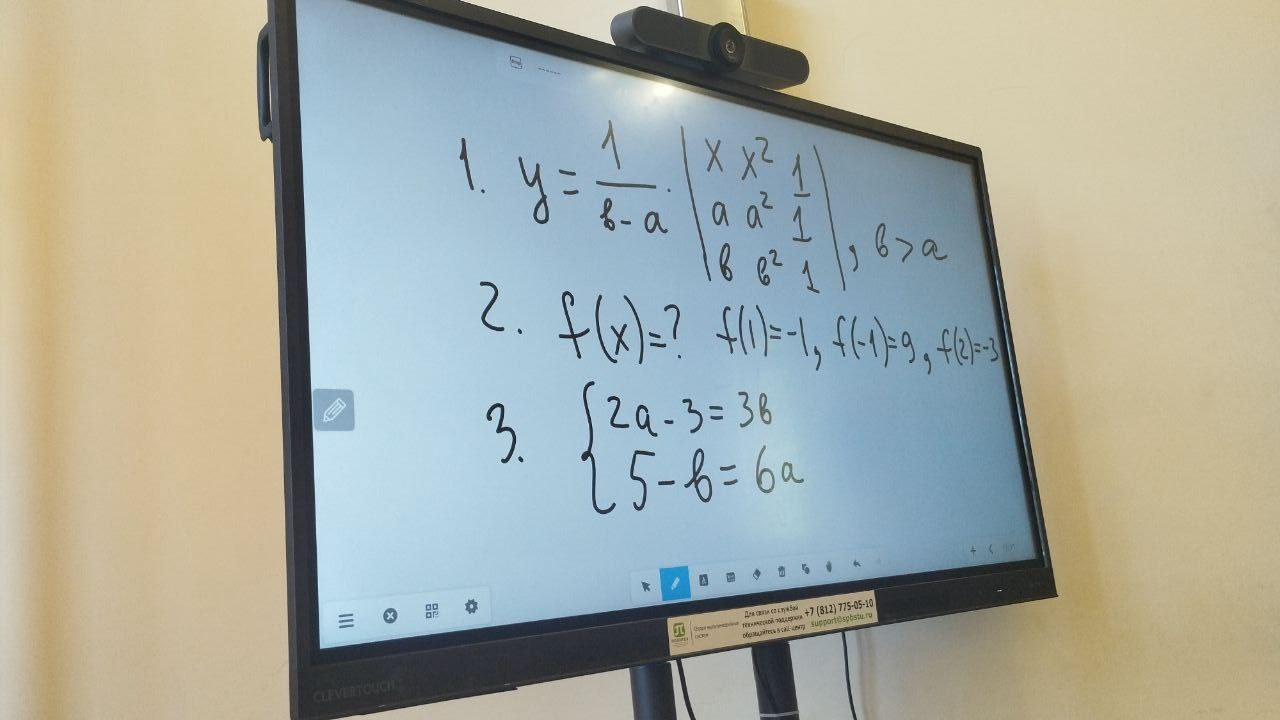 1. y = 1/(в-a) · | x x² 1 |
| a a² 1 |
| в в² 1 | , в > a
2. f(x)=? f(1)=-1, f(-1)=9, f(2)=-3
3. { 2a - 3 = 3в
5 - в = 6a
Для связи со службой
технической поддержки
обращайтесь в call-центр
+7 (812) 775-05-10
support@spbstu.ru
CLEVERTOUCH